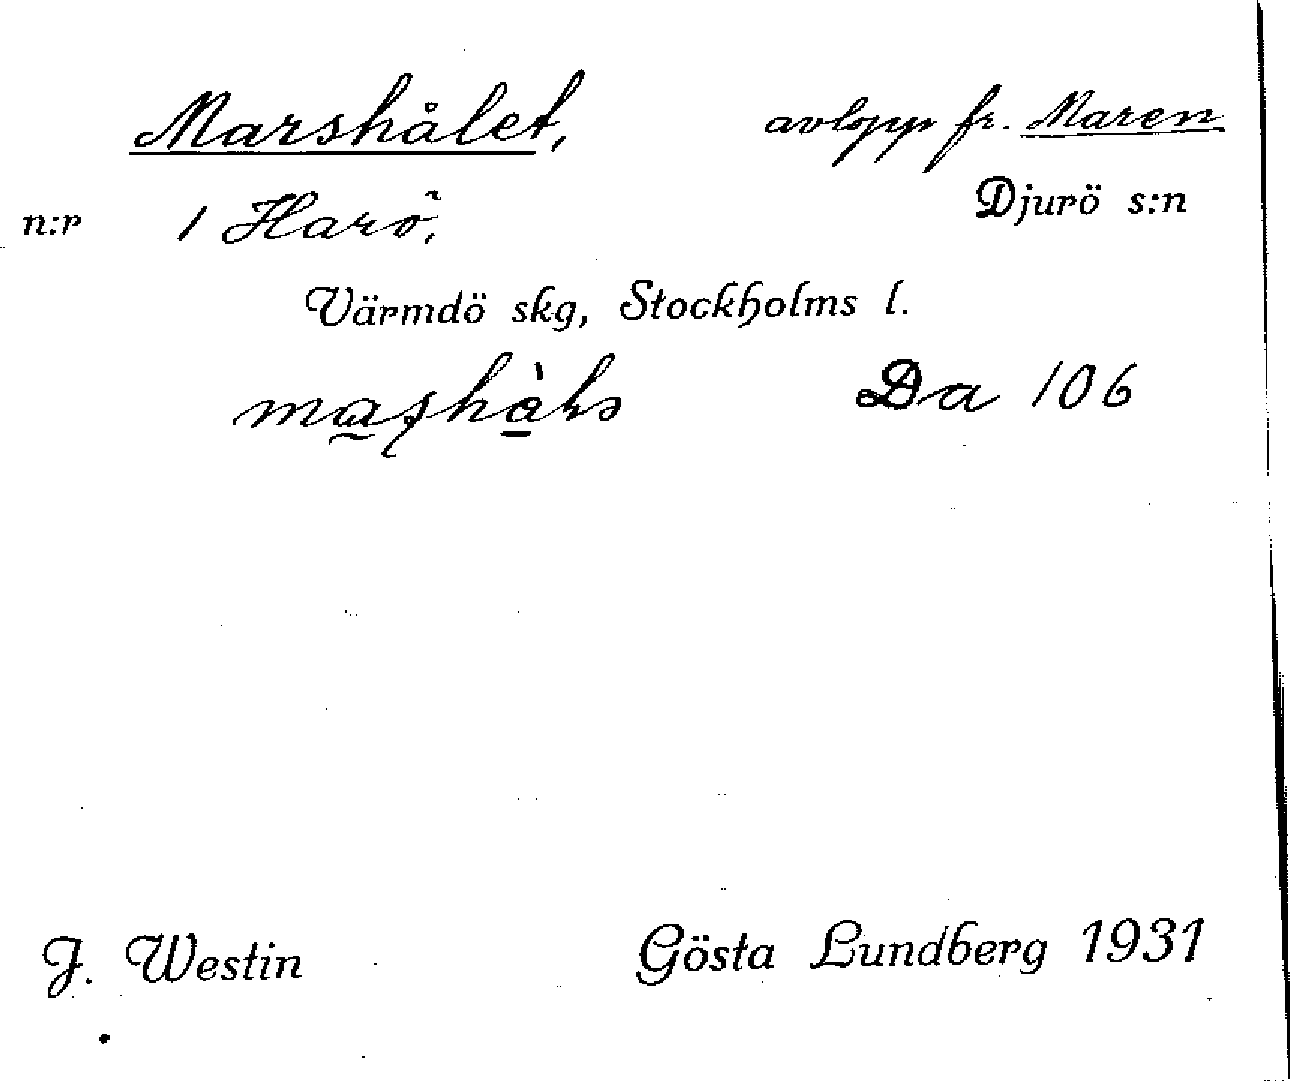 Marshålet, avlopp fr. Maren
n:r 1 Harö, Djurö s:n
Värmdö skg, Stockholms l.
Da 106
J. Westin Gösta Lundberg 1931